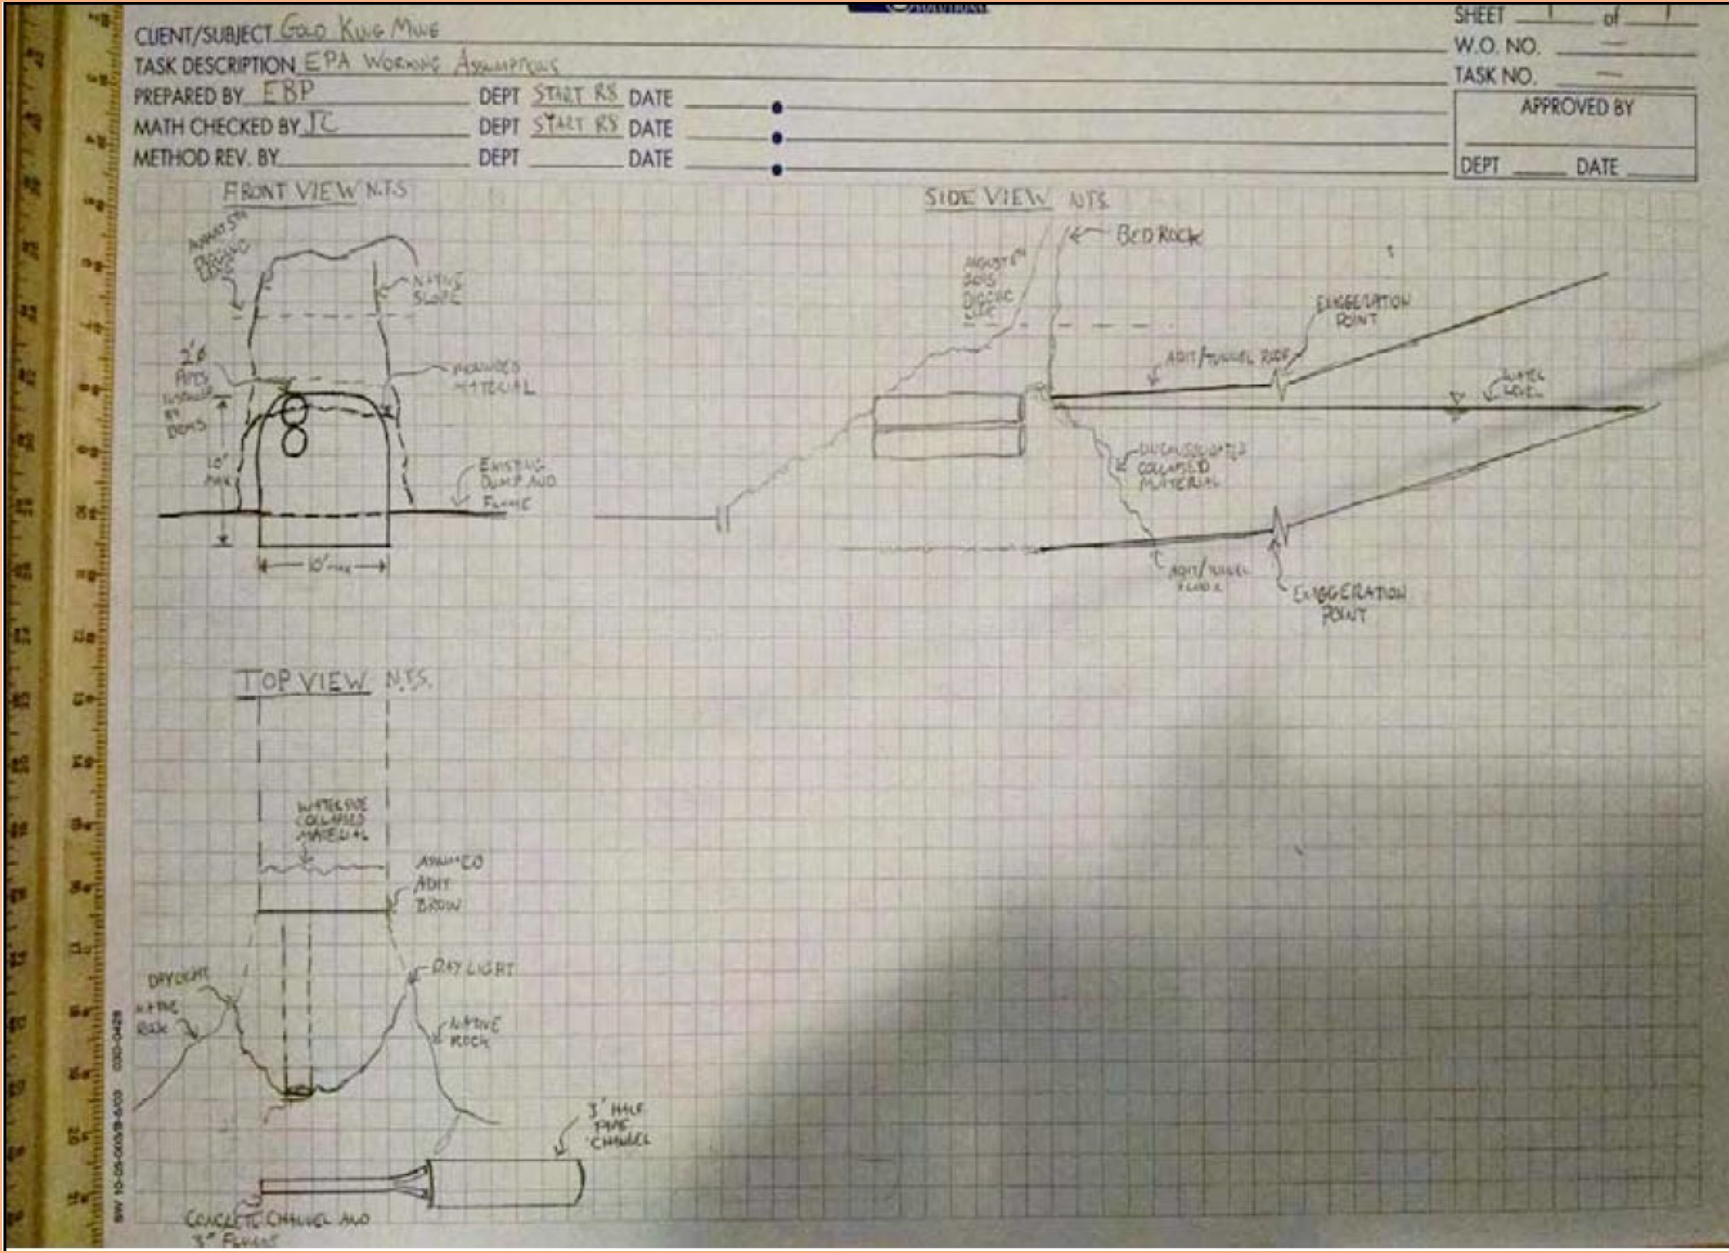 SOLUTIONS
SHEET 1 of 1
CLIENT/SUBJECT GOLD KING MINE
W.O. NO. —
TASK DESCRIPTION EPA WORKING ASSUMPTIONS
TASK NO. —
PREPARED BY EBP DEPT START R8 DATE
APPROVED BY
MATH CHECKED BY JC DEPT START R8 DATE
METHOD REV. BY DEPT DATE
DEPT DATE
FRONT VIEW N.T.S
AUGUST 5TH
DIGGING
NATIVE
SLOPE
2'Ø
PIPES
INSTALLED
BY
DRMS
10'
MAX
MOUNDED
MATERIAL
EXISTING
DUMP AND
FLUME
10' MAX
SIDE VIEW NTS.
BEDROCK
2015
DIGGING
EXAGGERATION
POINT
ADIT/TUNNEL ROOF
WATER
LEVEL
UNCONSOLIDATED
COLLAPSED
MATERIAL
ADIT/TUNNEL
FLOOR
EXAGGERATION
POINT
TOP VIEW N.T.S.
WATERSIDE
COLLAPSED
MATERIAL
ASSUMED
ADIT
BROW
DAYLIGHT
DAYLIGHT
NATIVE
ROCK
NATIVE
ROCK
3' HALF
PIPE
CHANNEL
CONCRETE CHANNEL AND
3"